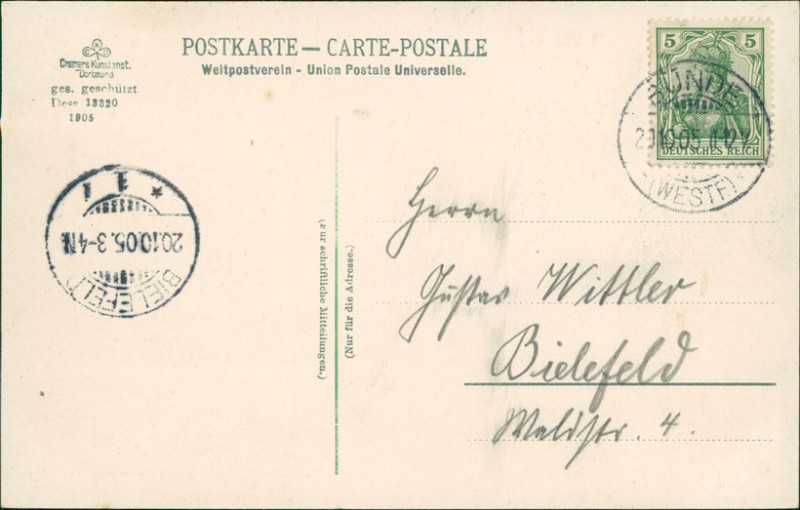 Cramers Kunstanst.
Dortmund
ges. geschützt
Dess 18320
1905
POSTKARTE — CARTE-POSTALE
Weltpostverein - Union Postale Universelle.
5 5
DEUTSCHES REICH
BÜNDE
20.10.05. 11-12V
* (WESTF) *
* 1 1
20.10.05.3-4N
BIELEFELD
(Für schriftliche Mitteilungen.)
(Nur für die Adresse.)
Herrn
Gustav Wittler
Bielefeld
Waldstr. 4.